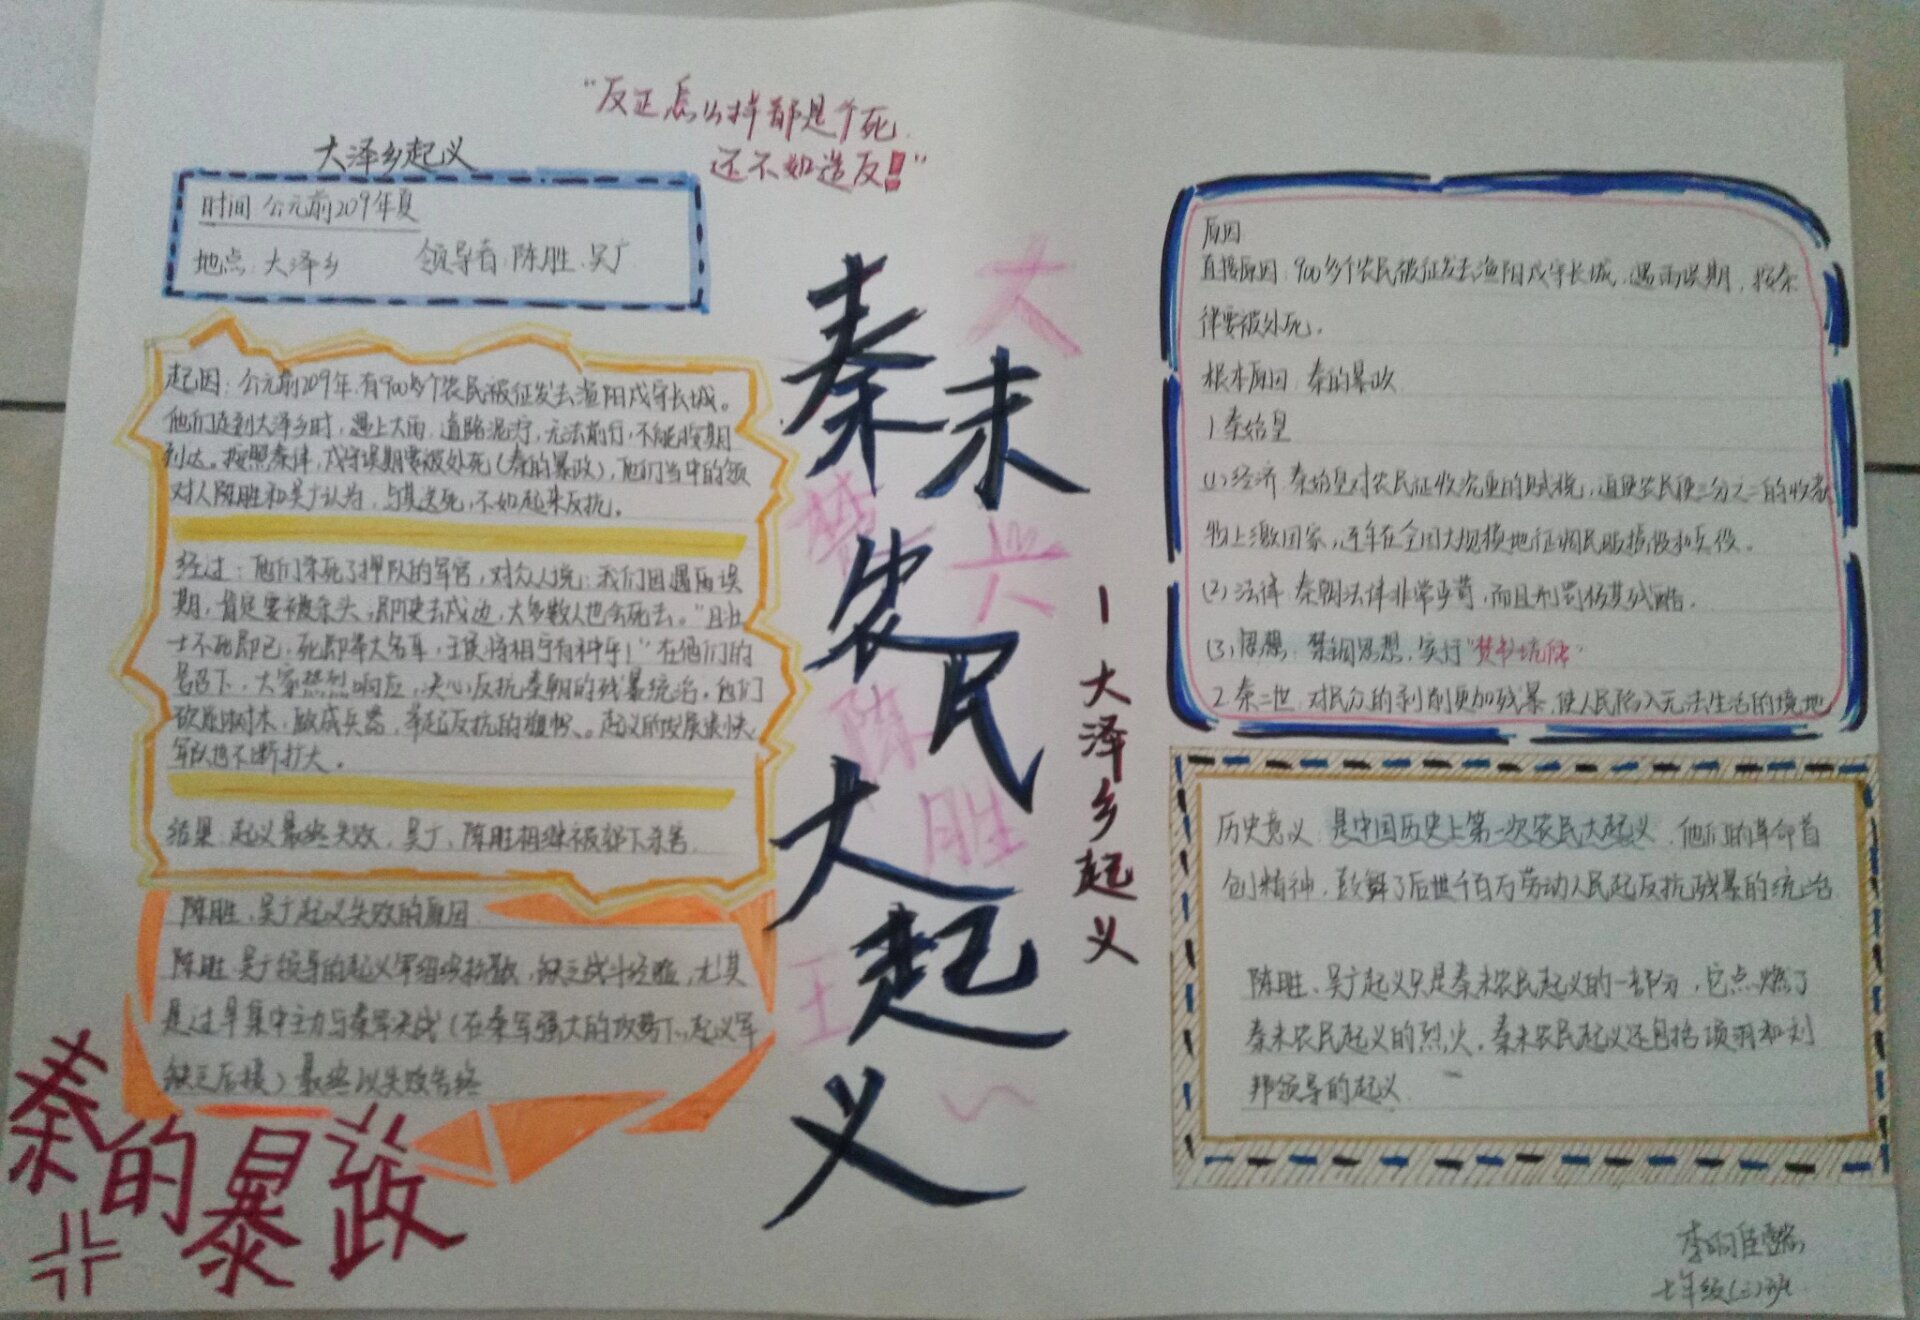 “反正怎么样都是个死
还不如造反!”
大泽乡起义
时间 公元前209年夏
地点：大泽乡 领导者：陈胜、吴广
起因：公元前209年，有900多个农民被征发去渔阳戍守长城。
他们走到大泽乡时，遇上大雨，道路泥泞，无法前行，不能按期
到达。按照秦律，戍守误期要被处死（秦的暴政），他们当中的领
对人陈胜和吴广认为，与其送死，不如起来反抗。
经过：他们杀死了押队的军官，对众人说：我们因遇雨误
期，肯定要被杀头，即使去戍边，大多数人也会死去。“且壮
士不死即已，死即举大名耳，王侯将相宁有种乎！”在他们的
号召下，大家热烈响应，决心反抗秦朝的残暴统治。他们
砍原树木，做成兵器，举起反抗的旗帜、。起义的发展很快，
军队也不断扩大。
结果：起义最终失败，吴广、陈胜相继被部下杀害
陈胜、吴广起义失败的原因
陈胜、吴广领导的起义军组织松散，缺乏战斗经验，尤其
是过早集中主力与秦军决战（在秦军强大的攻势下，起义军
缺乏后援）最终以失败告终
秦的暴政
秦末农民大起义
大楚兴
陈胜王
—大泽乡起义
原因
直接原因：900多个农民被征发去渔阳戍守长城，遇雨误期，按秦
律要被处死。
根本原因：秦的暴政
1 秦始皇
(1) 经济 秦始皇对农民征收沉重的赋税，迫使农民使三分之二的收获
物上缴国家，连年在全国大规模地征调民服徭役和兵役。
(2) 法律 秦朝法律非常严苛，而且刑罚极其残酷。
(3) 思想：禁锢思想，实行“焚书坑儒”
2 秦二世 对民众的剥削更加残暴，使人民陷入无法生活的境地
历史意义：是中国历史上第一次农民大起义，他们的革命首
创精神，鼓舞了后世千百万劳动人民起反抗残暴的统治
陈胜、吴广起义只是秦末农民起义的一部分，它点燃了
秦末农民起义的烈火。秦末农民起义还包括项羽和刘
邦领导的起义
七年级(三)班